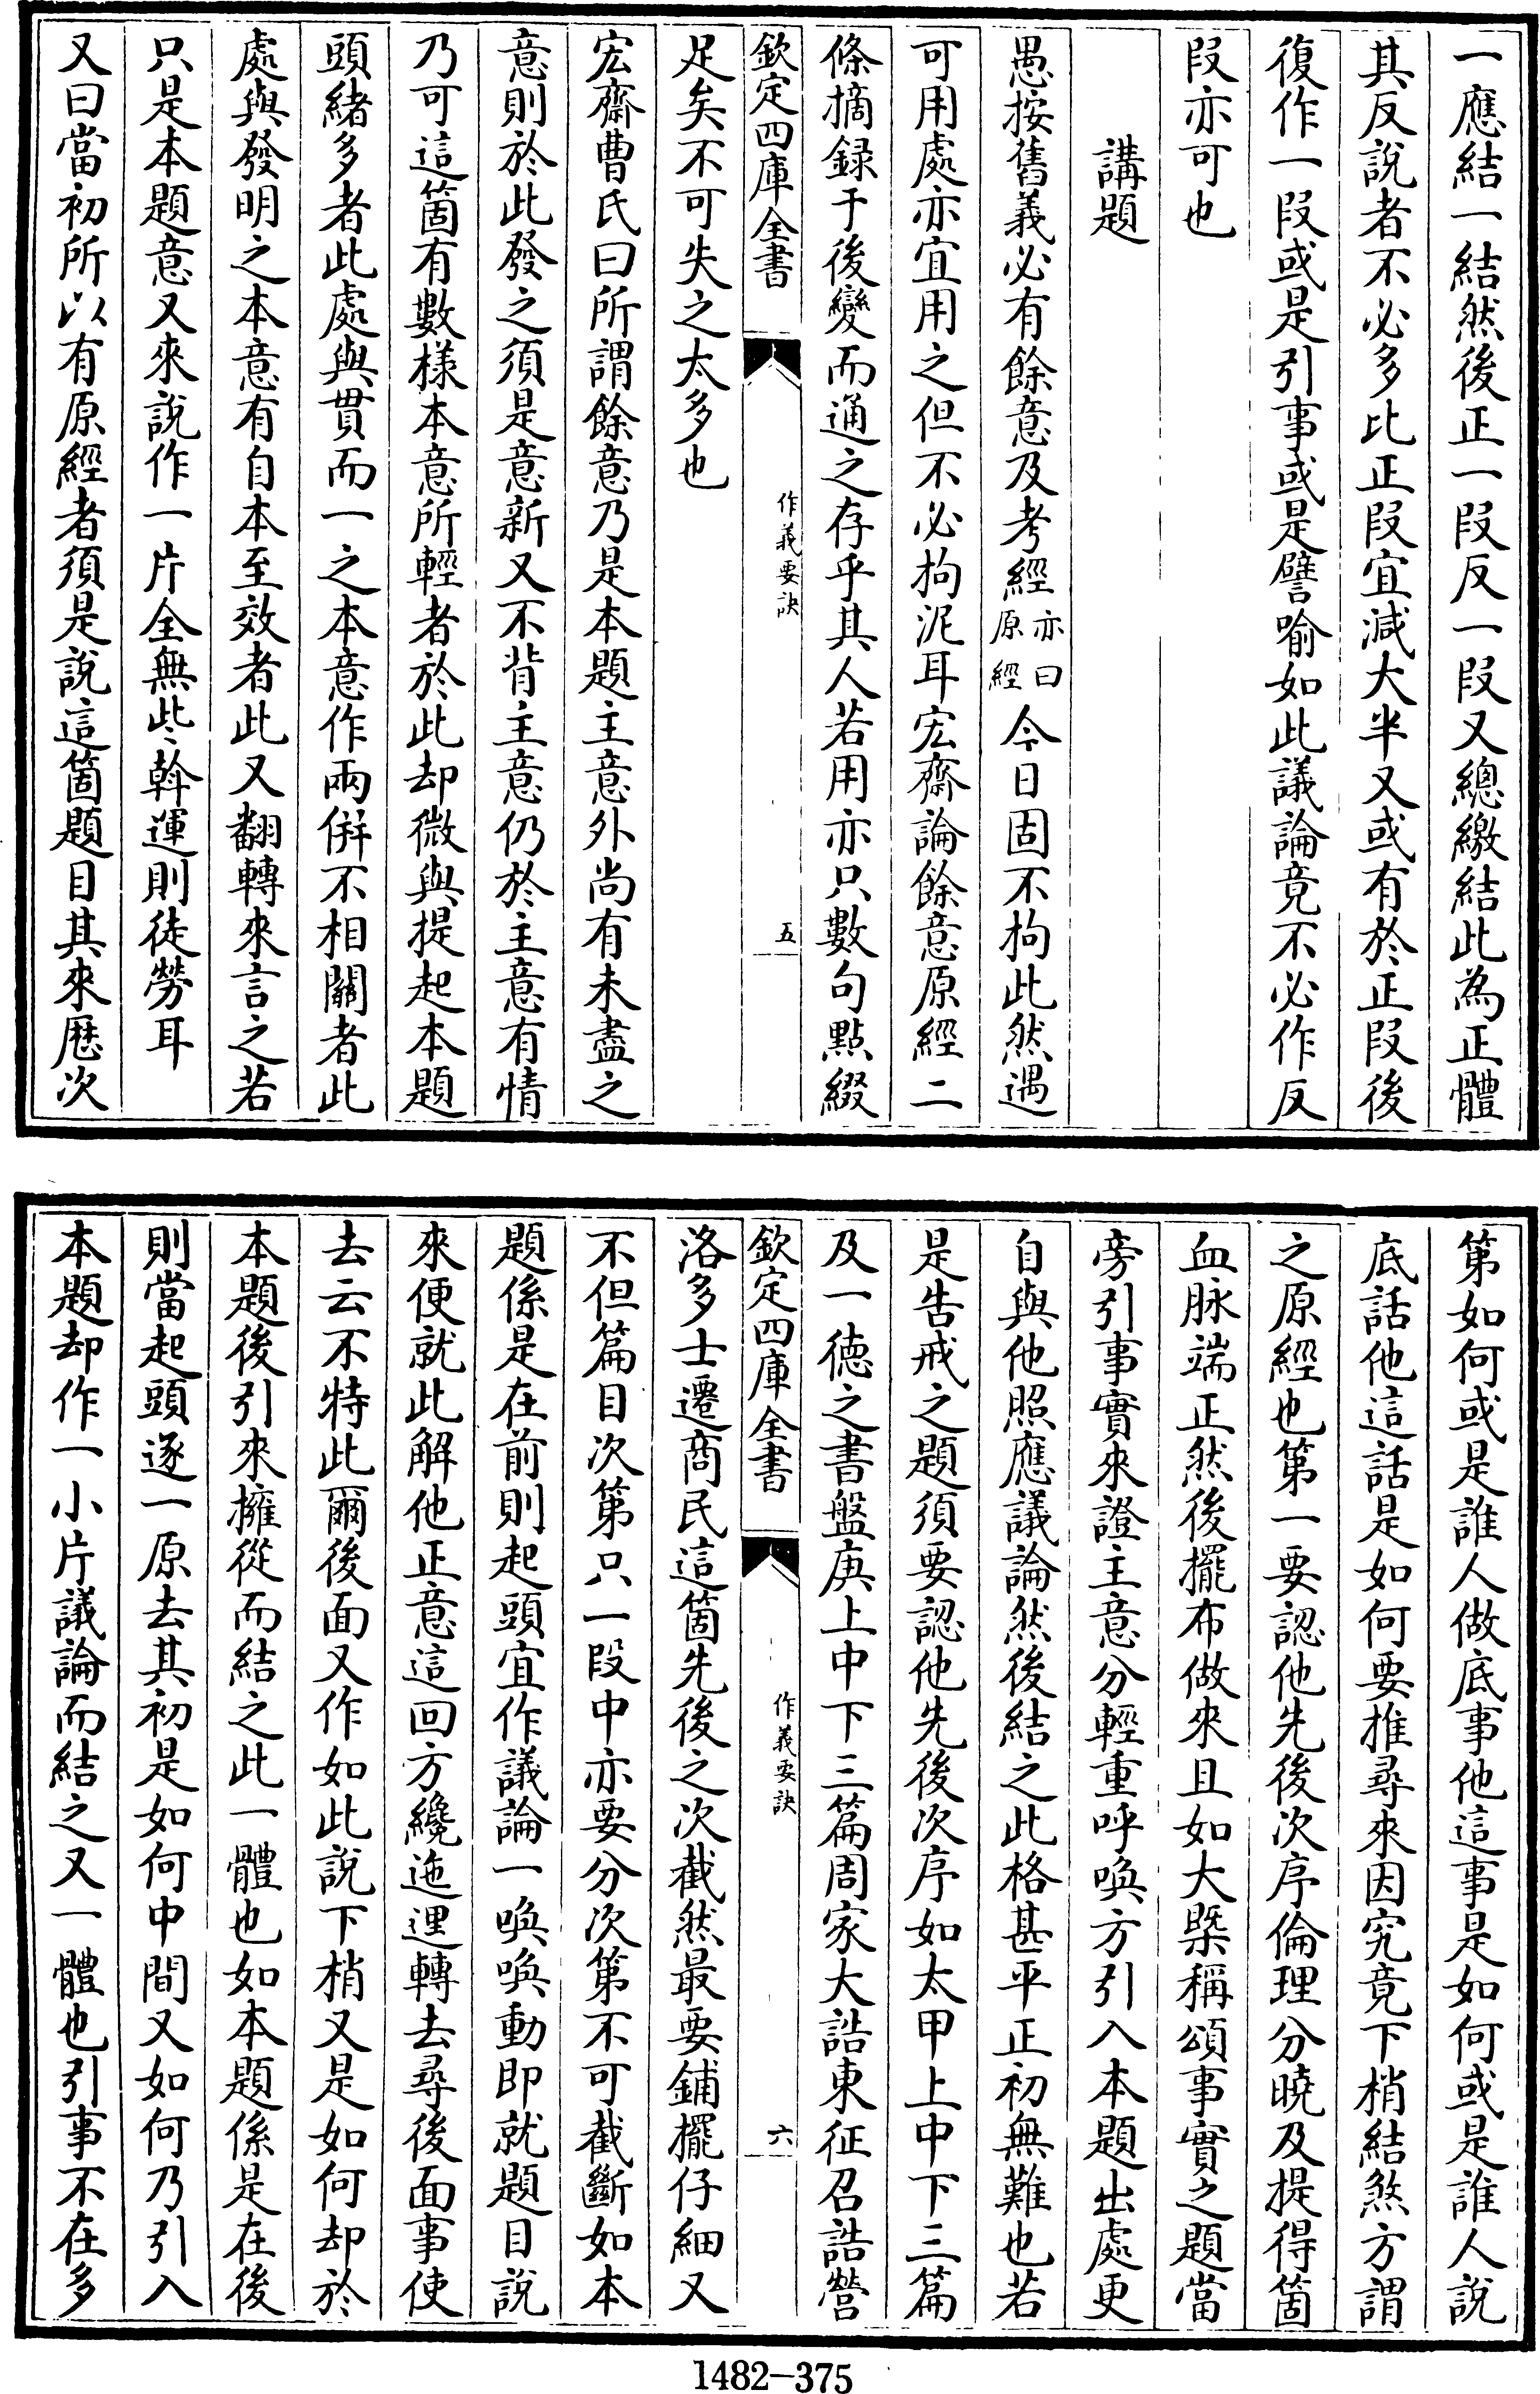 一應結一結然後正一段反一段又總繳結此為正體
其反說者不必多比正段宜減大半又或有於正段後
復作一段或是引事或是譬喻如此議論竟不必作反
段亦可也
講題
愚按舊義必有餘意及考經亦曰原經今日固不拘此然遇
可用處亦宜用之但不必拘泥耳宏齋論餘意原經二
條摘録于後變而通之存乎其人若用亦只數句點綴
欽定四庫全書
作義要訣
五
足矣不可失之太多也
宏齋曹氏曰所謂餘意乃是本題主意外尚有未盡之
意則於此發之須是意新又不背主意仍於主意有情
乃可這箇有數樣本意所輕者於此却微與提起本題
頭緒多者此處與貫而一之本意作兩併不相關者此
處與發明之本意有自本至效者此又翻轉來言之若
只是本題意又來說作一片全無些斡運則徒勞耳
又曰當初所以有原經者須是說這箇題目其來歴次
第如何或是誰人做底事他這事是如何或是誰人說
底話他這話是如何要推尋來因究竟下梢結煞方謂
之原經也第一要認他先後次序倫理分曉及提得箇
血脉端正然後擺布做來且如大槩稱頌事實之題當
旁引事實來證主意分輕重呼喚方引入本題出處更
自與他照應議論然後結之此格甚平正初無難也若
是告戒之題須要認他先後次序如太甲上中下三篇
及一德之書盤庚上中下三篇周家大誥東征召誥營
欽定四庫全書
作義要訣
六
洛多士遷商民這箇先後之次截然最要鋪擺仔細又
不但篇目次第只一段中亦要分次第不可截斷如本
題係是在前則起頭宜作議論一喚喚動即就題目說
來便就此解他正意這回方纔迤邐轉去尋後面事使
去云不特此爾後面又作如此說下梢又是如何却於
本題後引來擁從而結之此一體也如本題係是在後
則當起頭逐一原去其初是如何中間又如何乃引入
本題却作一小片議論而結之又一體也引事不在多
1482-375